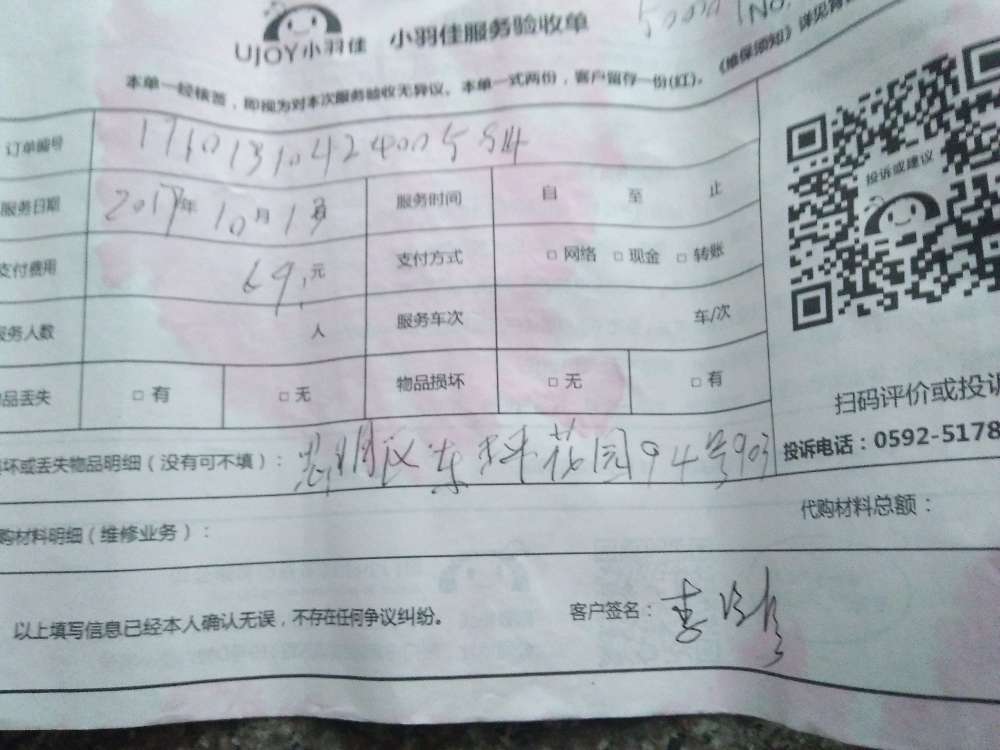 UJOY小羽佳 小羽佳服务验收单
No.
本单一经核签，即视为对本次服务验收无异议。本单一式两份，客户留存一份(红)。《维保须知》详见背
订单编号
服务日期 2017年10月13 服务时间 自 至 止
支付费用 69元 支付方式 □ 网络 □ 现金 □ 转账
服务人数 人 服务车次 车/次
品丢失 □ 有 □ 无 物品损坏 □ 无 □ 有
投诉或建议
扫码评价或投诉
投诉电话：0592-5178
坏或丢失物品明细（没有可不填）： 思明区东坪花园94号903
购材料明细（维修业务）： 代购材料总额：
以上填写信息已经本人确认无误，不存在任何争议纠纷。 客户签名：李